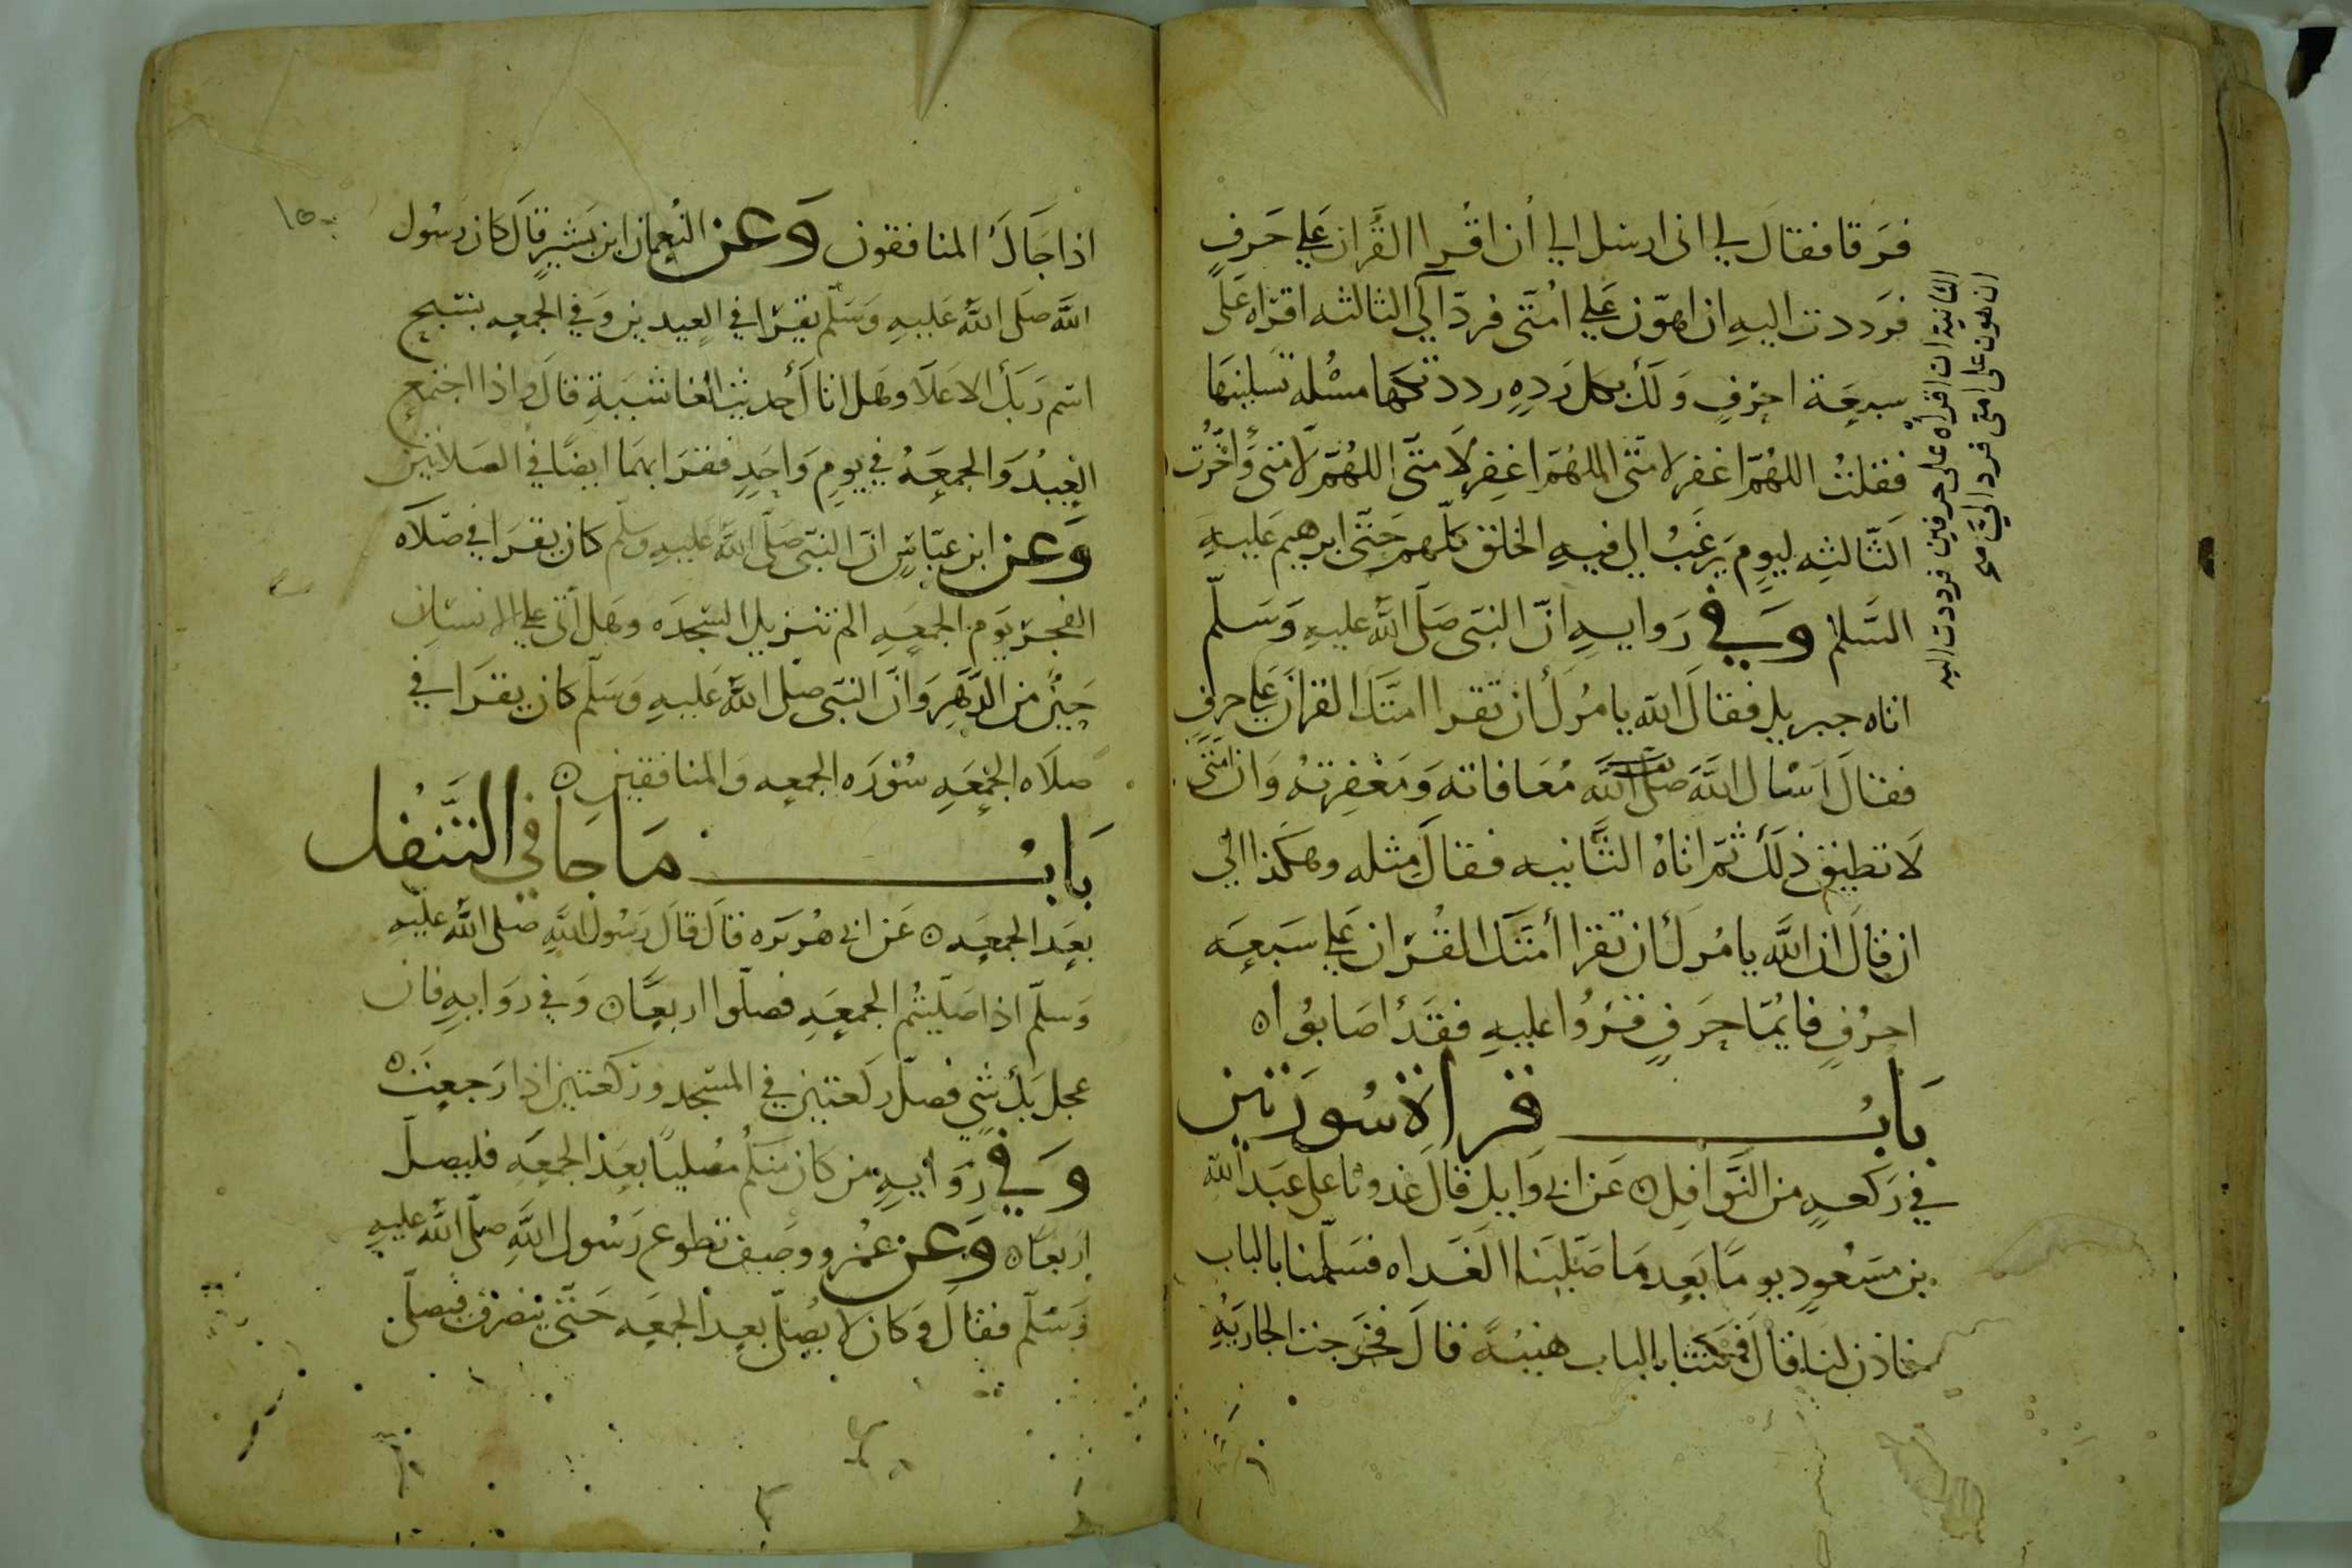 فرقا فقال لي اني ارسل الي أن اقرا القران علي حرف
فرددت اليه ان اهون علي امتى فرد الي الثالثه اقراه على
سبعة احرف ولك بكل رده رددتكها مسئلة تسلينها
فقلت اللهم اغفر لامتى اللهم اغفر لامتى اللهم لامتى وأخرت
الثالثه ليوم يرغب الي فيه الخلق كلهم حتى ابرهيم عليه
السلم وفي روايه ان النبى صلى الله عليه وسلم
اتاه جبريل فقال الله يامرك أن تقرا امتك القران علي حرف
فقال اسال الله معافاته ومغفرته وان امتى
لا تطيق ذلك ثم اتاه الثانيه فقال مثله وهكذا الي
ان قال ان الله يامرك أن تقرا أمتك القران علي سبعه
احرف فايما حرف قروا عليه فقد اصابوا ه
باب قراة سورتين
في ركعه من النوافل ه عن ابي وايل قال غدونا على عبد الله
بن مسعود يوما بعد ما صلينا الغداه فسلمنا بالباب
فاذن لنا قال فمكثنا بالباب هنية قال فخرجت الجارية
الثانية ان اقراه على حرفين فرددت اليه
ان هون على امتى فرد الي صح
اذا جاك المنافقون وعن النعمان ابن بشير قال كان رسول
الله صلى الله عليه وسلم يقرا في العيدين وفي الجمعه بسبح
اسم ربك الاعلا وهل اتاك حديث الغاشية قال واذا اجتمع
العيد والجمعه في يوم واحد فقرا بهما ايضا في الصلاتين
وعن ابن عباس ان النبى صلى الله عليه وسلم كان يقرا في صلاه
الفجر يوم الجمعه الم تنزيل السجده وهل أتى علي الانسان
حين من الدهر وان النبى صلى الله عليه وسلم كان يقرا في
صلاه الجمعه سوره الجمعه والمنافقين ه
باب ما جا في التنفل
بعد الجمعه ه عن ابي هريره قال قال رسول الله صلى الله عليه
وسلم اذا صليتم الجمعه فصلوا اربعا ه وفي روايه فان
عجل بك شي فصل ركعتين في المسجد وركعتين اذا رجعت ه
وفي روايه من كان منكم مصليا بعد الجمعه فليصل
اربعا ه وعن عمرو ووصف تطوع رسول الله صلى الله عليه
وسلم فقال وكان لا يصلى بعد الجمعه حتى ينصرف فيصلى